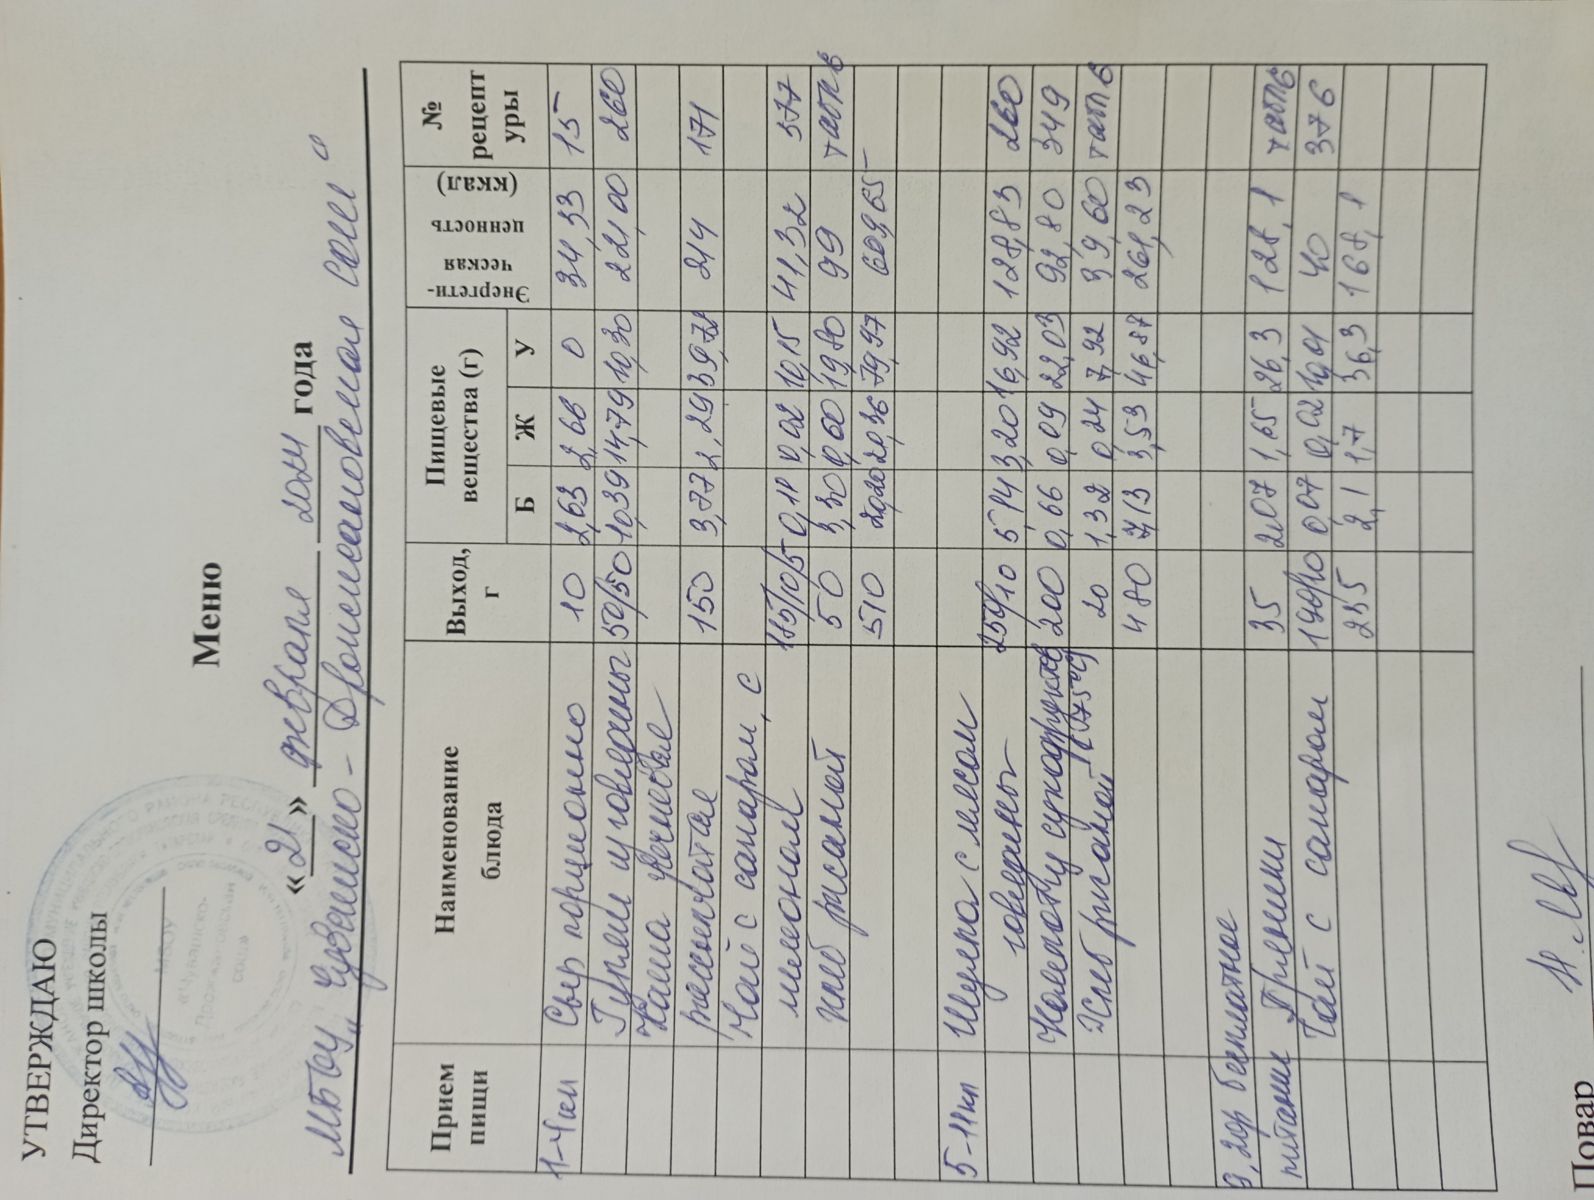 УТВЕРЖДАЮ
Директор школы
Меню
«21» февраля года
МБОУ
Прием пищи Наименование блюда Выход, г Пищевые вещества (г) Энергети-ческая ценность (ккал) № рецептуры
Б Ж У
1-4 кл Сыр порционно 10 2,63 2,66 0 34,33 15
Гуляш из говядины 50/50 10,39 14,79 10,30 221,00 260
Каша гречневая
рассыпчатая 150 3,77 2,29 39,72 214 171
Чай с сахаром, с
лимоном 185/10/5 0,11 0,02 10,15 41,32 377
хлеб ржаной 50 3,30 0,60 19,80 99
510 20,20 20,36 79,97 609,65
5-11 кл с мясом
говядины 250/10 5,14 3,20 16,92 128,83
Компот из сухофруктов 200 0,66 0,09 22,03 92,80 349
Хлеб ржаной 20 1,32 0,24 7,92 39,60
480 7,13 3,53 46,87 261,23
бесплатное
питание Пряники 35 2,07 1,65 26,3 128,1
Чай с сахаром 190/10 0,07 0,02 10,01 40 376
235 2,1 1,7 36,3 168,1
Повар